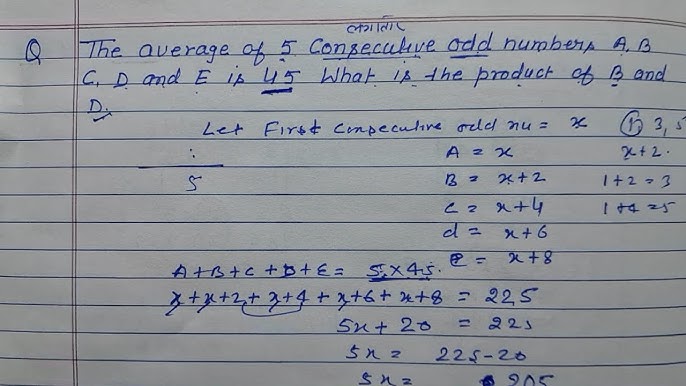 लगातार
Q The average of 5 Consecutive odd numbers A, B
C, D and E is 45 What is the product of B and
D.
Let First Consecutive odd nu = x ① 3, 5
A = x x+2.
: B = x+2 1+2=3
5 C = x+4 1+4=5
d = x+6
E = x+8
A+B+C+D+E = 5×45.
x+x+2+x+4+x+6+x+8 = 225
5x+20 = 225
5x = 225-20
5x = 205